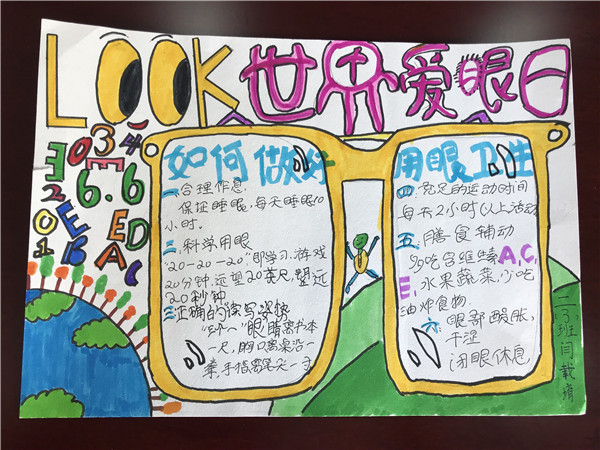 LOOK世界爱眼日
034
E
2 6.6
O E ED
1 B A C
如何做好
一、合理作息
保证睡眠,每天睡眠10
小时。
二、科学用眼
"20-20-20"即学习、游戏
20分钟,远望20英尺,望远
20秒钟
三、正确的读写姿势
"三个一"眼睛离书本
一尺,胸口离桌沿一
拳,手指离笔尖一寸
用眼卫生
四、充足的运动时间
每天2小时以上活动
五、膳食辅助
多吃含维生素A,C,
E,水果蔬菜,少吃
油炸食物.
六、眼部酸胀,
干涩
闭眼休息
二、3班闫载